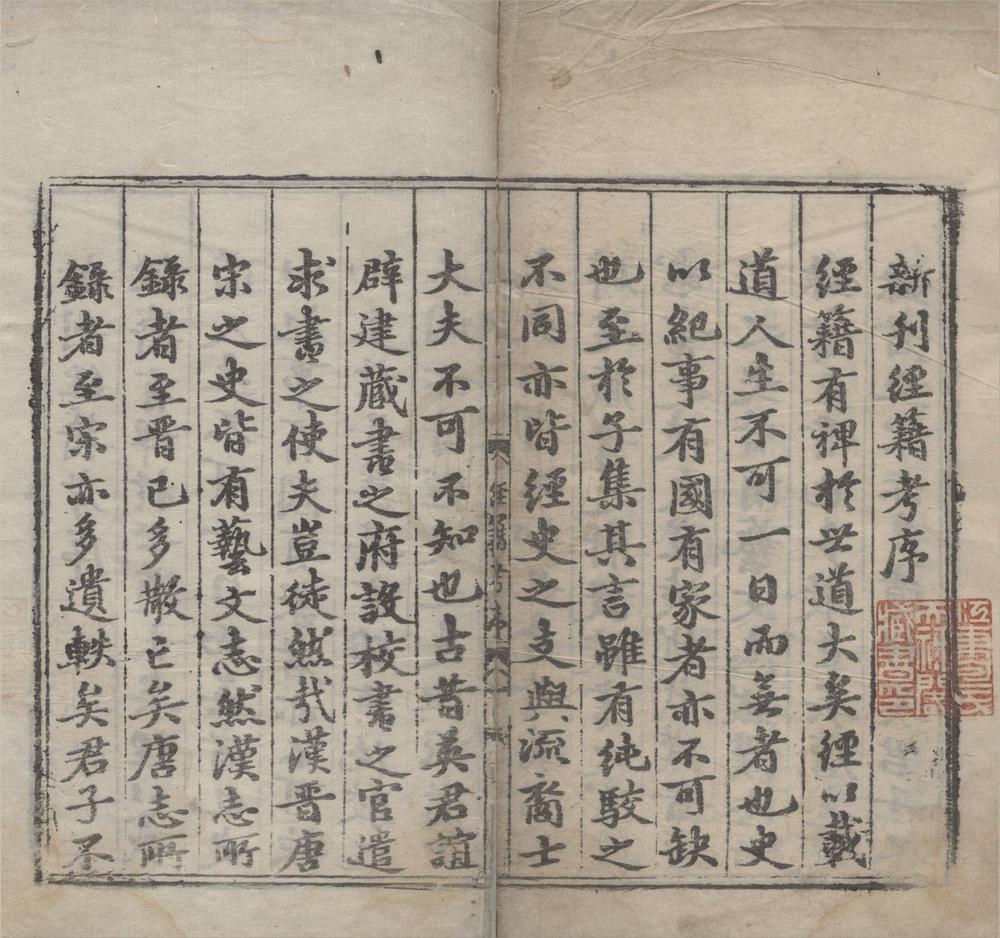 新刊經籍考序
經籍有裨於世道大矣經以載
道人生不可一日而無者也史
以紀事有國有家者亦不可缺
也至於子集其言雖有純駁之
不同亦皆經史之支與流裔士
大夫不可不知也古昔英君誼
辟建藏書之府設校書之官遣
求書之使夫豈徒然哉漢晋唐
宋之史皆有藝文志然漢志所
錄者至晋已多散亡矣唐志所
錄者至宋亦多遺軼矣君子不
經籍考序